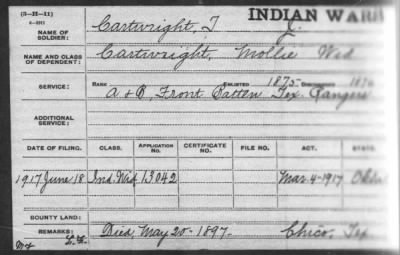 (3-H-11)
INDIAN WARS
NAME OF SOLDIER: Cartwright, T
NAME AND CLASS OF DEPENDENT: Cartwright, Mollie Wid
RANK ENLISTED 1875 DISCHARGED 1876
SERVICE: A & B, Front Batten Tex. Rangers
ADDITIONAL SERVICE:
DATE OF FILING. CLASS. APPLICATION NO. CERTIFICATE NO. FILE NO. ACT. STATE.
1917 June 18 Ind. Wid 13042 Mar. 4-1917 Okla
BOUNTY LAND:
REMARKS: Died, May 20-1897- Chico, Tex